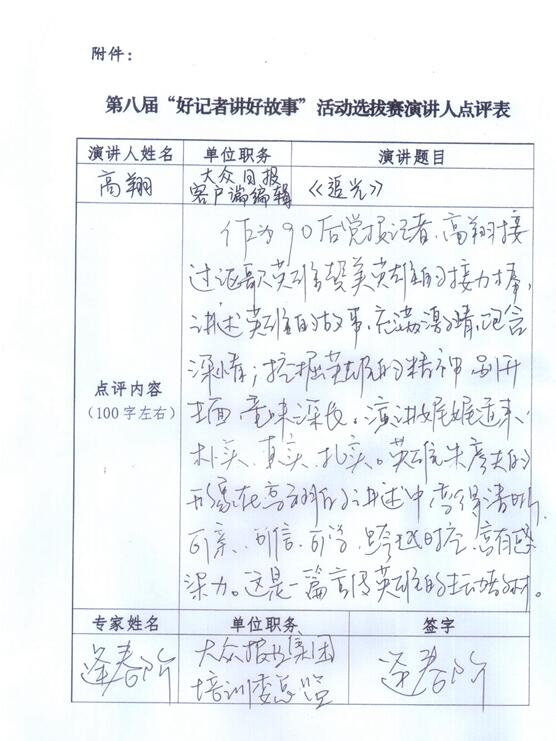 附件：
第八届“好记者讲好故事”活动选拔赛演讲人点评表
演讲人姓名 单位职务 演讲题目
高翔 大众日报 《追光》
客户端编辑
作为90后党报记者，高翔接
过讴歌英雄赞美英雄的接力棒，
讲述英雄的故事，充满激情，饱含
深情；挖掘英雄的精神，别开
生面，意味深长。演讲娓娓道来、
点评内容
（100字左右）
朴实、真实、扎实。英雄朱彦夫的
形象在高翔的讲述中变得清晰、
可亲、可信、可学，跨越时空，富有感
染力。这是一篇宣传英雄的生动教材。
专家姓名 单位职务 签字
逄春阶 大众报业集团 逄春阶
培训